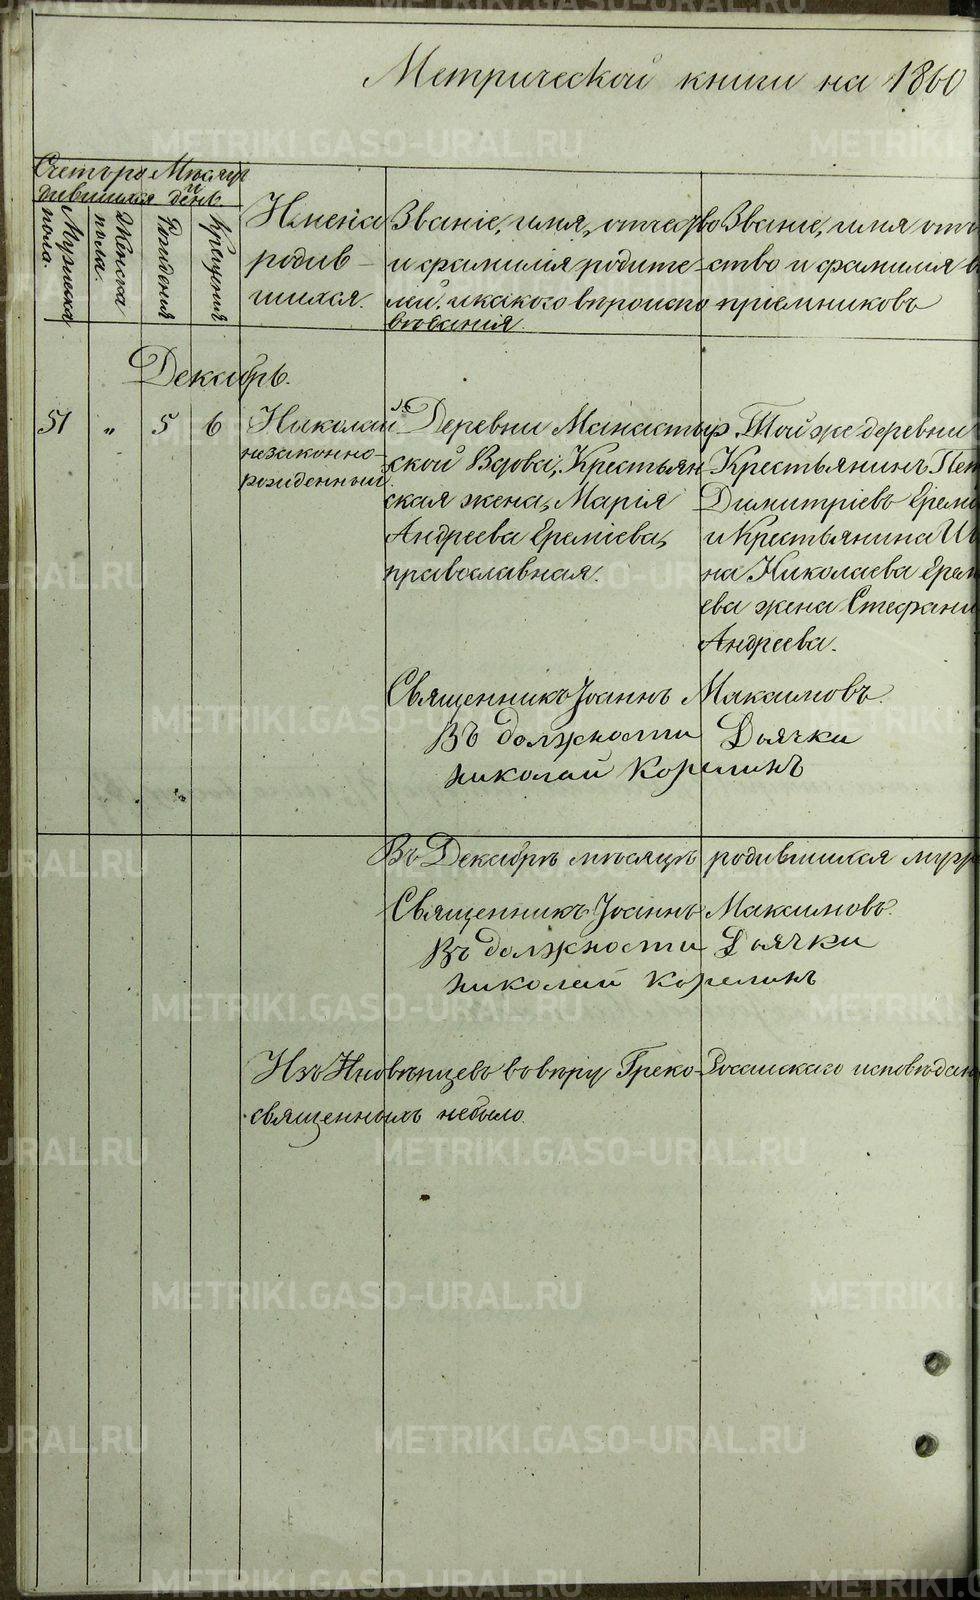 Метрической книги на 1860
Счетъ ро Месяцъ
дившихся и день.
Мужеска пола.
Женска пола.
Рождения
Крещения
Имена
родив-
шихся.
Званіе, имя, отчество
и фамилія родите-
лей, и какого вѣроиспо
вѣданія.
Званіе, имя отче
ство и фамилія в
пріемниковъ
Декабрь.
51 „ 5 6
Николай
незаконно-
рожденный.
Деревни Манастыр
ской Вдова, Крестьян
ская жена, Марія
Андреева Ереміева,
православная.
Той же деревни
Крестьянинъ Пет
Димитріевъ Ереми
и Крестьянина Ив
на Николаева Ерем
ева жена Стефани
Андреева.
Священникъ Іоаннъ Максимовъ.
Въ должности Дьячки
николай Корелинъ
Въ Декабрѣ мѣсяцѣ родившихся муж
Священникъ Іоаннъ Максимовъ.
Въ должности Дьячки
николай Корелинъ
Изъ Иновѣрцевъ въ вѣру Греко-Россійскаго исповѣдан
священныхъ небыло.
METRIKI.GASO-URAL.RU